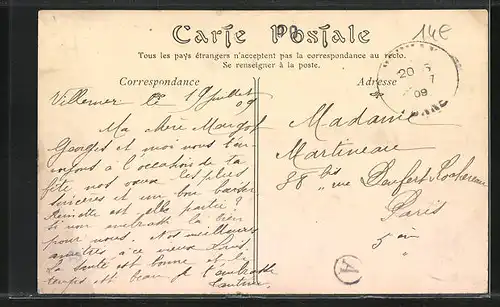 14€
Carte Postale
Tous les pays étrangers n'acceptent pas la correspondance au recto.
Se renseigner à la poste.
Correspondance
Adresse
Villemer le 19 Juillet
09
Ma chère Margot
Georges et moi nous t'en-
voyons à l'occasion de ta
fête nos vœux les plus
sincères et un bon baiser
est elle partie ?
si non embrasse la bien
pour nous. Nos meilleures
amitiés à ce vieux
La santé est bonne et le
temps est beau je t'embrasse
Madame
Martineau
88 bis rue Denfert-Rochereau
Paris
5 e
20
7
09